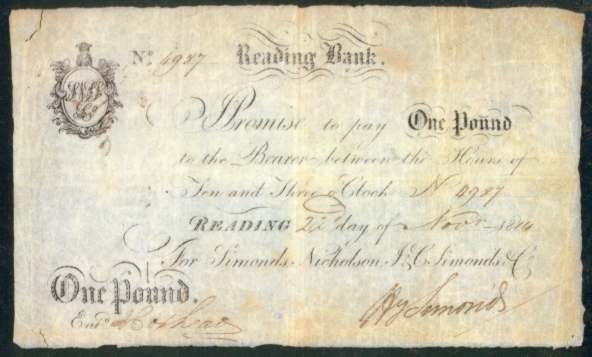 No. 4987 Reading Bank.
I Promise to pay One Pound
to the Bearer between the Hours of
Ten and Three o'Clock No 4987
READING day of Novr. 1814
For Simonds, Nicholson, J & C Simonds & Co
One Pound.
Entd.
Hy Simonds